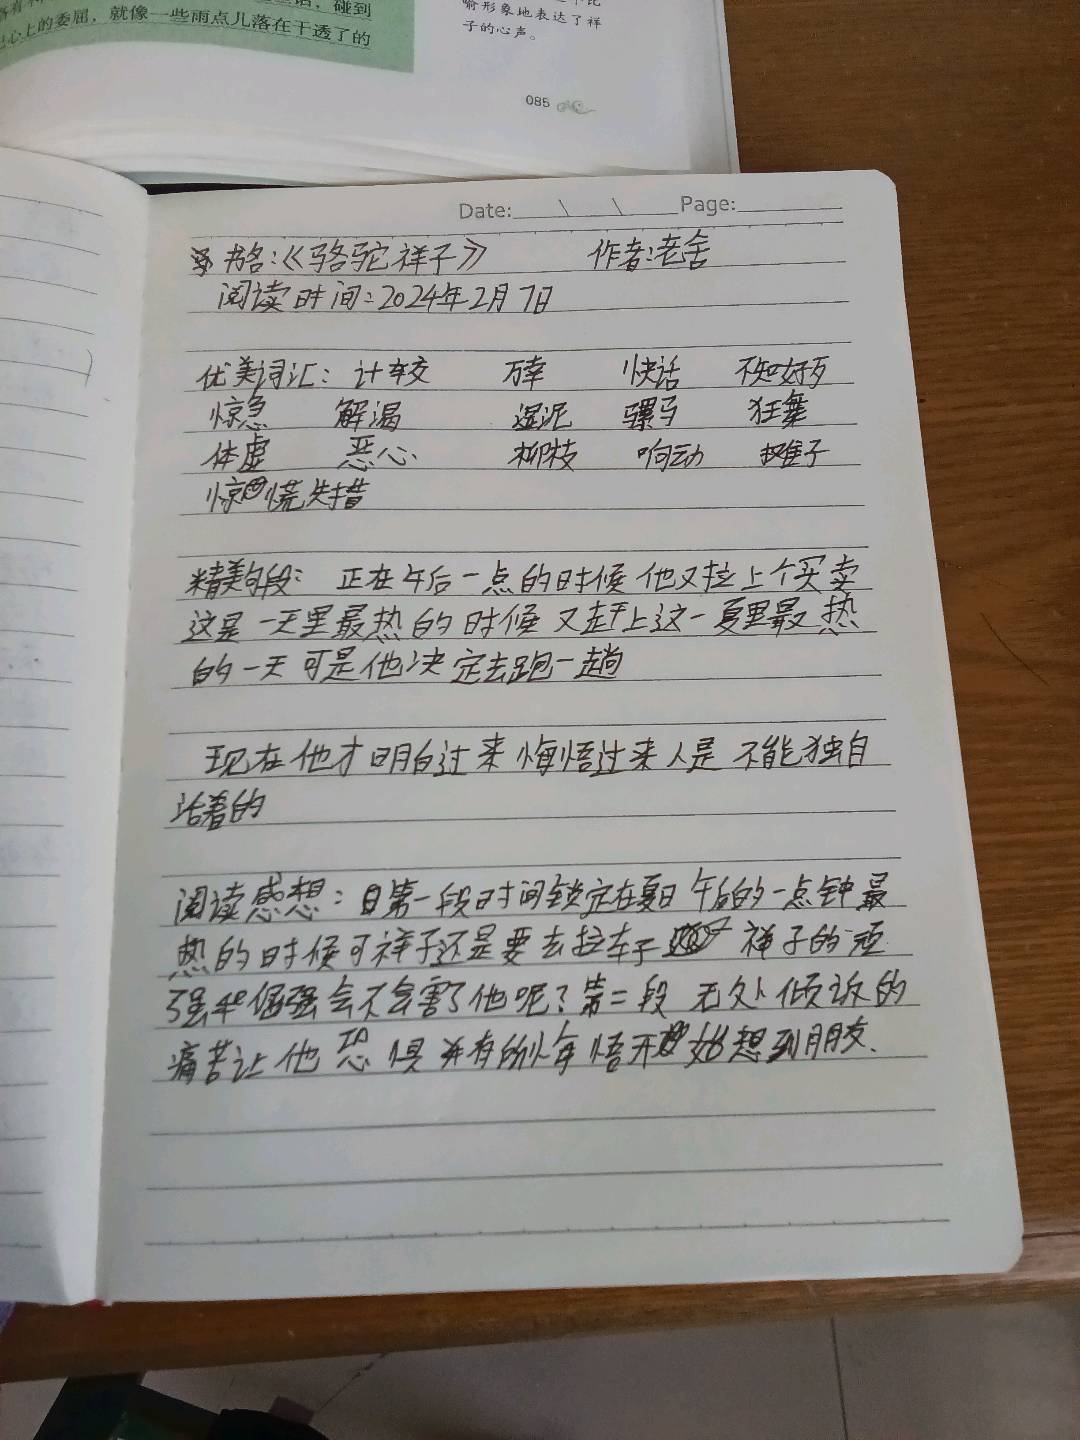 碰到
心上的委屈，就像一些雨点儿落在干透了的
喻形象地表达了祥
子的心声。
085
Date: \ \ Page:
书名：《骆驼祥子》 作者：老舍
阅读时间：2024年2月7日
优美词汇： 计较 万幸 快活 不知好歹
惊急 解渴 湿泥 骡马 狂舞
体虚 恶心 柳枝 响动 摊子
惊慌失措
精美句段： 正在午后一点的时候他又拉上个买卖
这是一天里最热的时候又赶上这一夏里最热
的一天可是他决定去跑一趟
现在他才明白过来悔悟过来人是不能独自
活着的
阅读感想：第一段时间锁定在夏日午后的一点钟最
热的时候可祥子还是要去拉车子祥子的顽
强和倔强会不会害了他呢？第二段 无处倾诉的
痛苦让他恐惧并有所悔悟开始想到朋友.